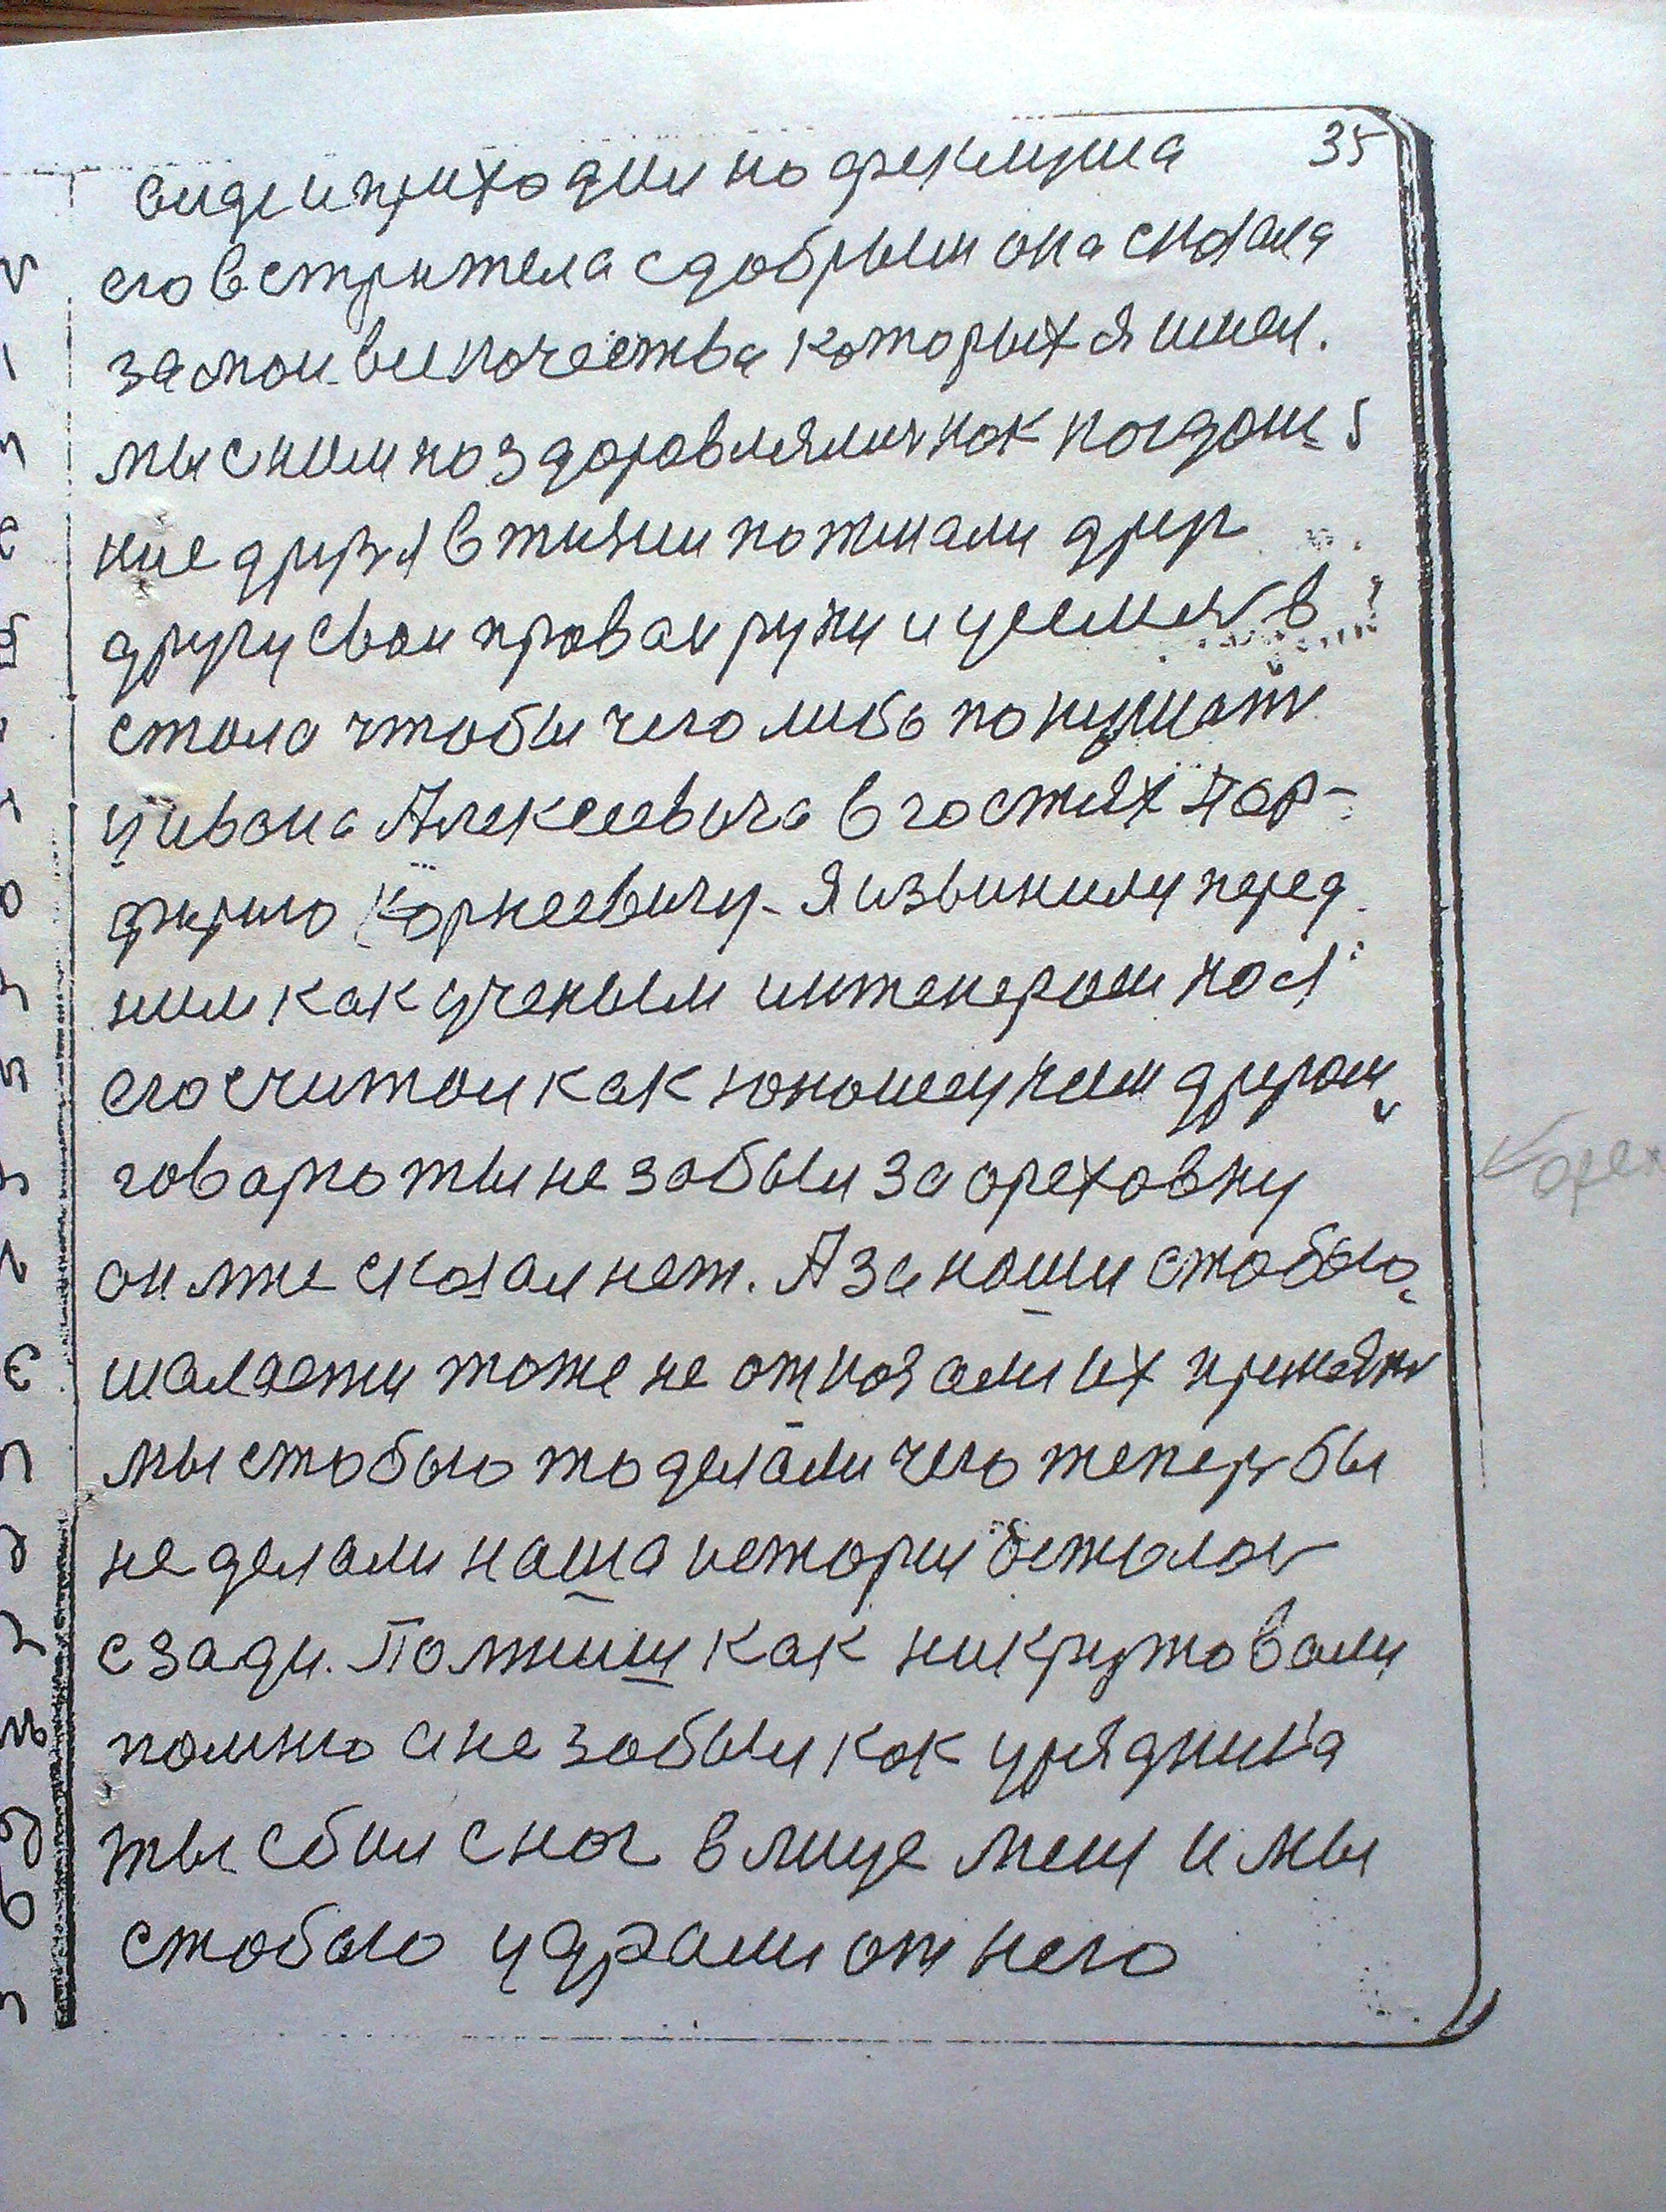 35
виде и приходил но феклуша
его встритела с добрым она сказала
за твои вси почества которых я имел.
мы с ним поздоровлялись как
ние друзя в жизни пожимали друг
другу свои праваи руки и уселись в
стола чтобы чего либо покушать
у ивана Алексеевича в гостях пор-
Корнеевичу. Я извинилу перед
ним как ученым инженером но я
его считои как юношещу чем другом
говарю ты не забыл за ореховку
он мне сказал нет. А за наши стобою
шалости тоже не отказали их
мы стобою то делали чего теперь бы
не делали наша истории осталось
сзади. Полжиш как ни крутовали
помню а не забыл как урядника
ты сбил с ног в лице меш и мы
стобою удрали от него